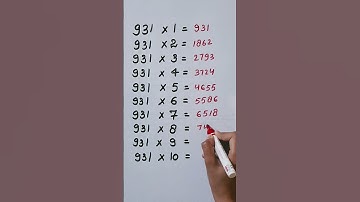 931 × 1 = 931
931 × 2 = 1862
931 × 3 = 2793
931 × 4 = 3724
931 × 5 = 4655
931 × 6 = 5586
931 × 7 = 6518
931 × 8 = 74
931 × 9 =
931 × 10 =